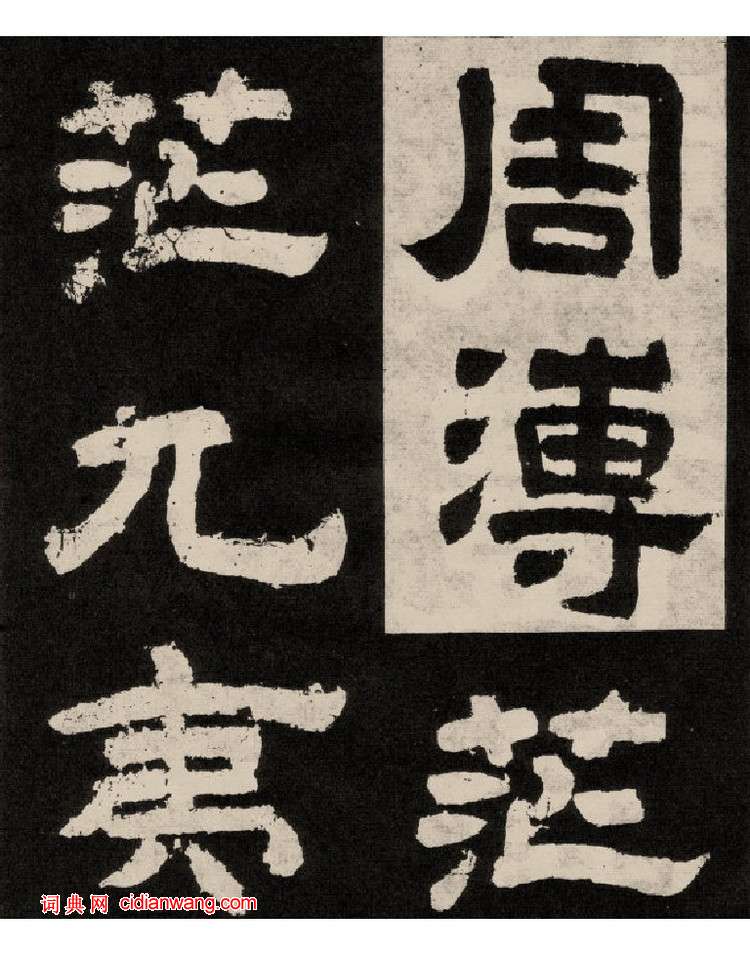 周溥茫
茫九
词典网 cidianwang.com